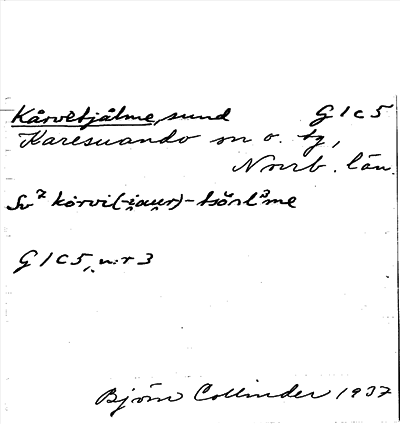 Kårvetjålme, sund G1c5
Karesuando sn o. tg,
Norrb. län.
Sv⁷ kǫrvi(-i̯au̯r)-tšǫ̆lˈme
G1C5, n:r 3
Björn Collinder 1937